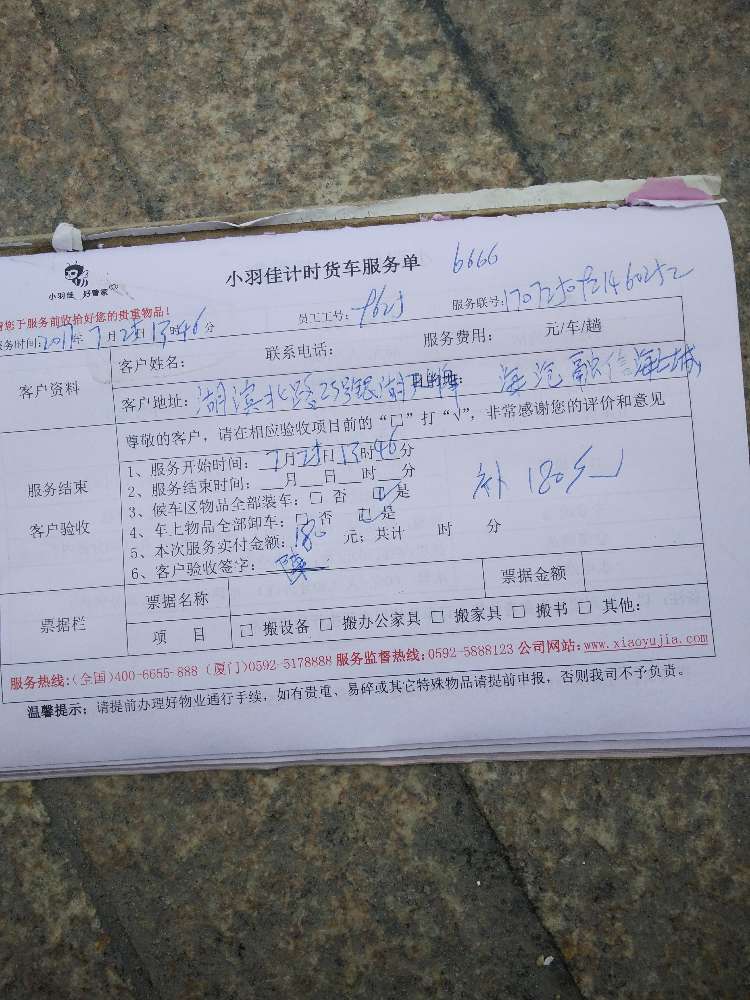 小羽佳计时货车服务单 6666
小羽佳 好管家
请您于服务前收拾好您的贵重物品！
服务时间:2017年7月25日13时46分 员工工号: 服务联号:
客户资料
客户姓名: 联系电话: 服务费用: 元/车/趟
客户地址: 湖滨北路25号银湖 目的地: 海沧融信海上城
服务结束
客户验收
尊敬的客户，请在相应验收项目前的“□”打“√”，非常感谢您的评价和意见
1、服务开始时间: 7月25日13时46分
2、服务结束时间: 月 日 时 分
3、候车区物品全部装车: □ 否 ☑是
4、车上物品全部卸车: □ 否 ☑是
5、本次服务实付金额: 180 元; 共计 时 分
6、客户验收签字:
补180元
票据栏
票据名称 票据金额
项 目 □ 搬设备 □ 搬办公家具 □ 搬家具 □ 搬书 □ 其他:
服务热线:(全国)400-6655-888 (厦门)0592-5178888 服务监督热线:0592-5888123 公司网站:www.xiaoyujia.com
温馨提示: 请提前办理好物业通行手续，如有贵重、易碎或其它特殊物品请提前申报，否则我司不予负责。